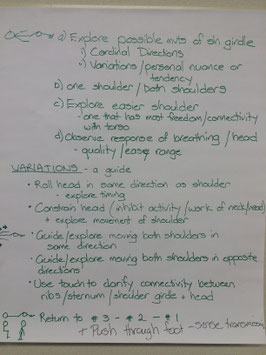 a) Explore possible mvts of sh girdle
i) Cardinal Directions
ii) Variations/personal nuance or
tendency
b) one shoulder/both shoulders
c) Explore easier shoulder
- one that has most freedom/connectivity
with torso
d) Observe response of breathing/head
- quality/ease, range
VARIATIONS - a guide
• Roll head in same direction as shoulder
- explore timing
• Constrain head/inhibit activity/work of neck/head
+ explore movement of shoulder
• Guide/explore moving both shoulders in
same direction
• Guide/explore moving both shoulders in opposite
directions
• Use touch to clarify connectivity between
ribs/sternum/shoulder girdle + head
• Return to #3 - #2 - #1
+ Push through foot - sense transmission